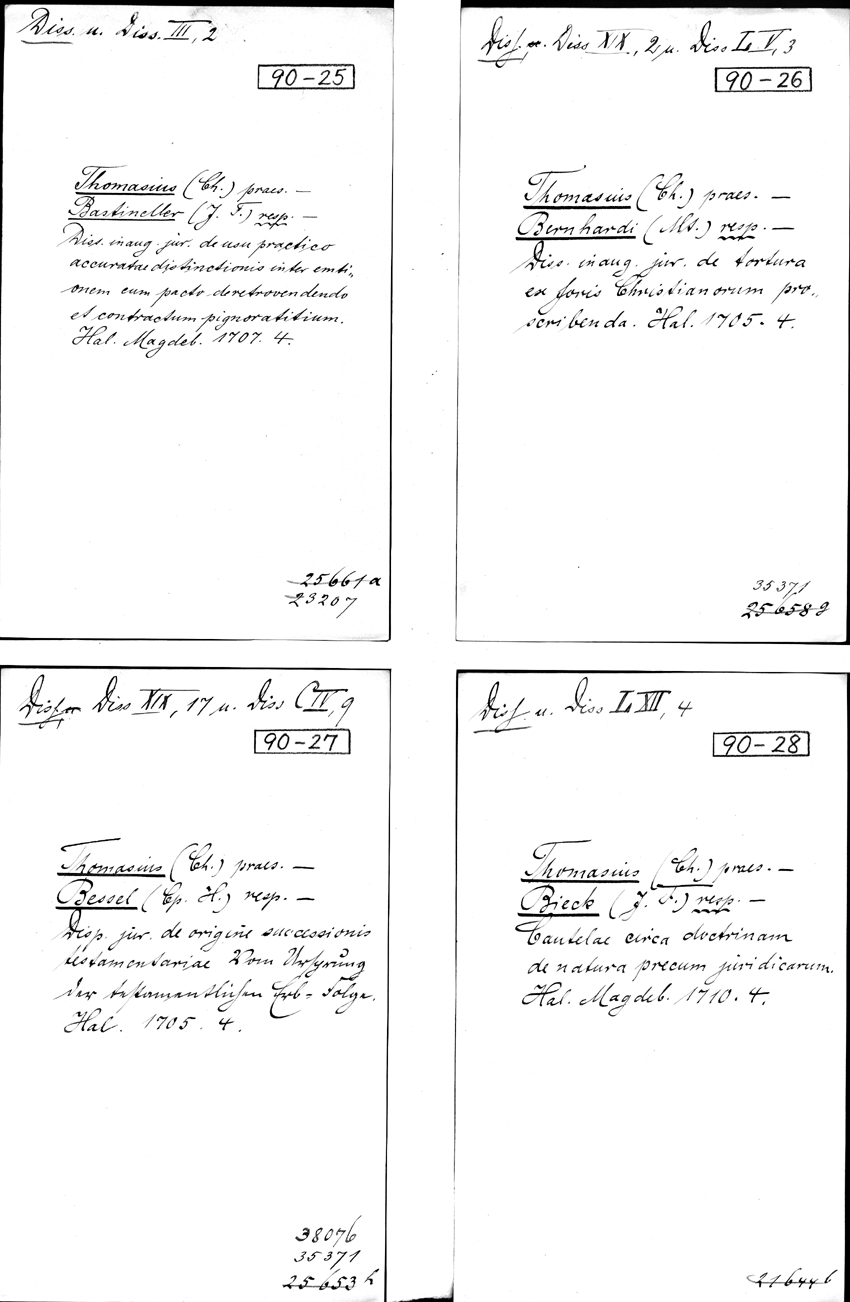 Diss. u. Diss. III, 2
90-25
Thomasius (Ch.) praes. —
Bastineller (J. F.) resp. —
Diss. inaug. jur. de usu practico
accuratae distinctionis inter emti-
onem cum pacto de retrovendendo
et contractum pignoratitium.
Hal. Magdeb. 1707. 4.
25661a
23207
Diss. u. Diss XIX, 2 u. Diss LV, 3
90-26
Thomasius (Ch.) praes. —
Bernhardi (Mt.) resp. —
Diss. inaug. jur. de tortura
ex foris Christianorum pro-
scribenda. Hal. 1705. 4.
35371
25658g
Diss. u. Diss XIX, 17 u. Diss CIV, 9
90-27
Thomasius (Ch.) praes. —
Bessel (Cp. H.) resp. —
Disp. jur. de origine successionis
testamentariae Vom Ursprung
der testamentlichen Erb-Folge.
Hal. 1705. 4.
38076
35371
25653h
Diss. u. Diss LXII, 4
90-28
Thomasius (Ch.) praes. —
Bieck (J. F.) resp. —
Cautelae circa doctrinam
de natura precum juridicarum.
Hal. Magdeb. 1710. 4.
21644b